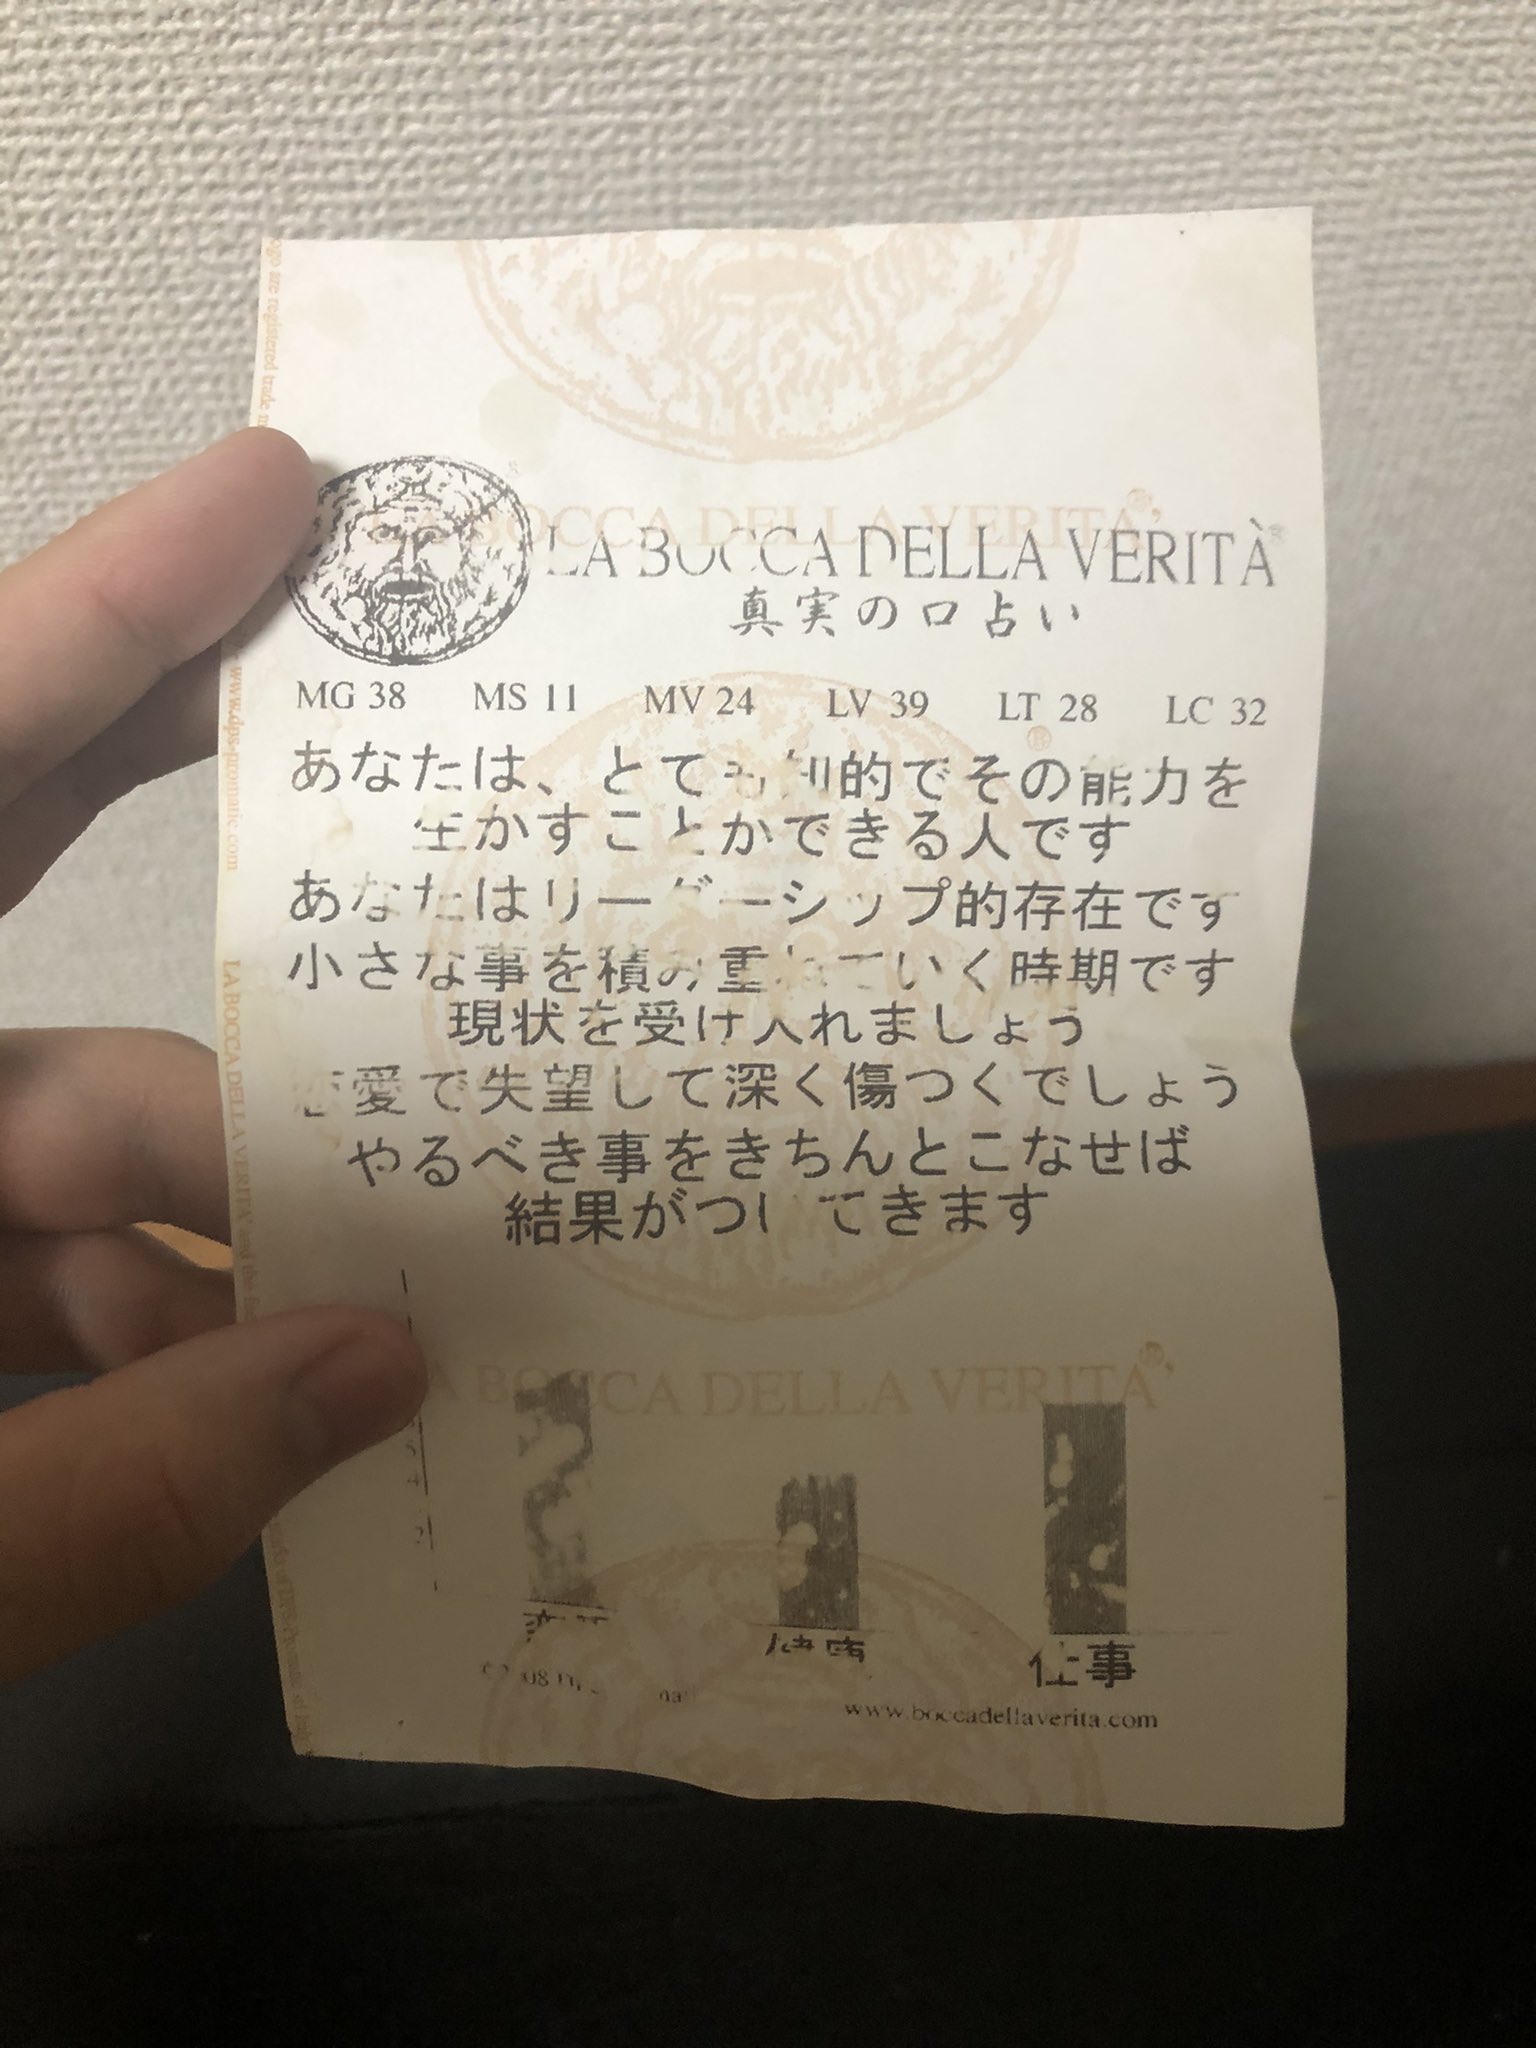 LA BOCCA DELLA VERITÀ
真実の口占い
MG 38 MS 11 MV 24 LV 39 LT 28 LC 32
あなたは、とても知的でその能力を
生かすことができる人です
あなたはリーダーシップ的存在です
小さな事を積み重ねていく時期です
現状を受け入れましょう
恋愛で失望して深く傷つくでしょう
やるべき事をきちんとこなせば
結果がついてきます
LA BOCCA DELLA VERITA'
健康 仕事
www.boccadellaverita.com